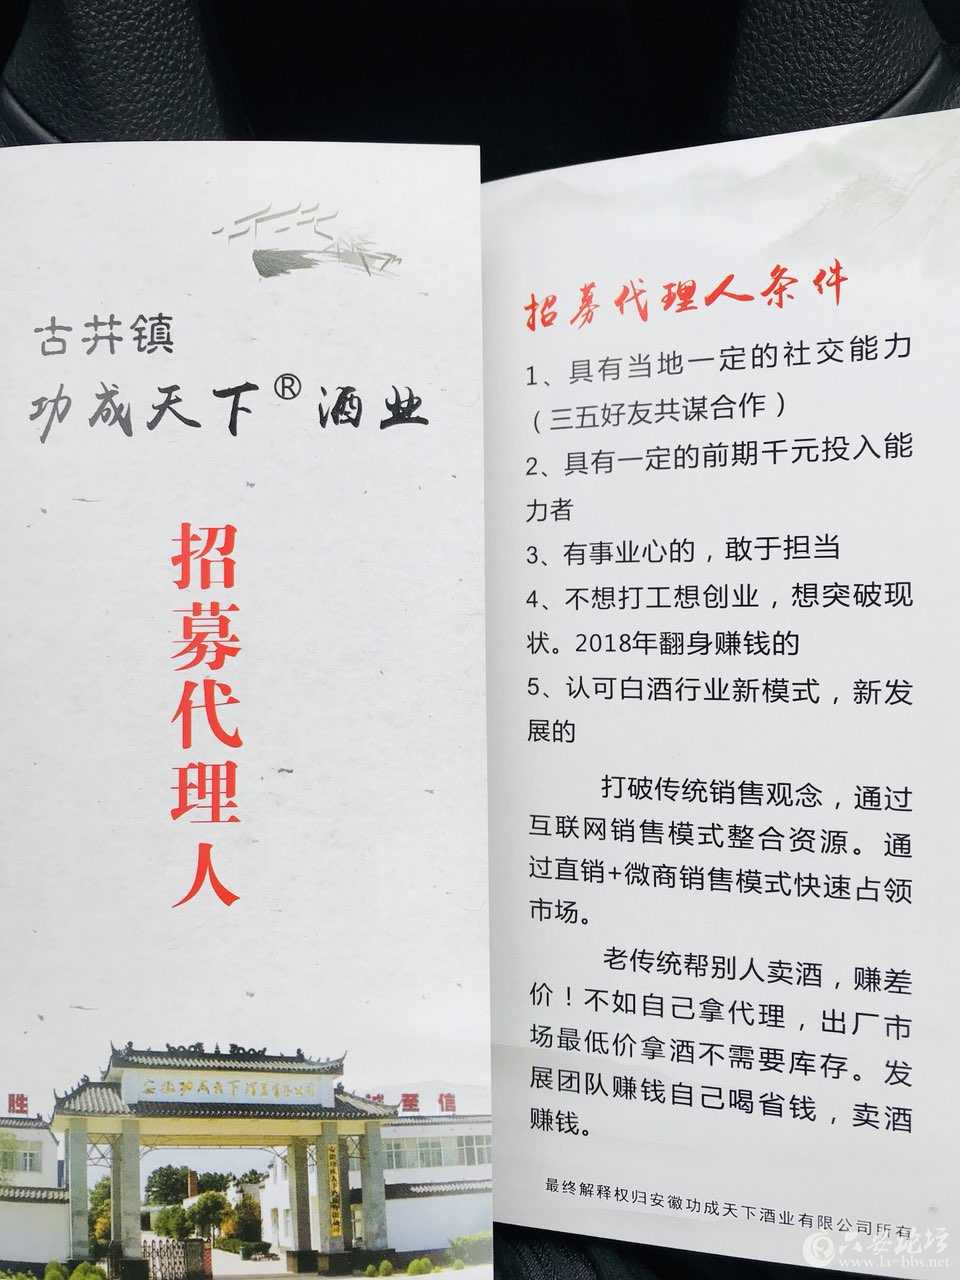 古井镇
功成天下®酒业
招募代理人
安徽功成天下酒业有限公司
胜
诚至信
招募代理人条件
1、具有当地一定的社交能力
（三五好友共谋合作）
2、具有一定的前期千元投入能
力者
3、有事业心的，敢于担当
4、不想打工想创业，想突破现
状。2018年翻身赚钱的
5、认可白酒行业新模式，新发
展的
打破传统销售观念，通过
互联网销售模式整合资源。通
过直销+微商销售模式快速占领
市场。
老传统帮别人卖酒，赚差
价！不如自己拿代理，出厂市
场最低价拿酒不需要库存。发
展团队赚钱自己喝省钱，卖酒
赚钱。
最终解释权归安徽功成天下酒业有限公司所有
六安论坛
www.lv-bbs.net